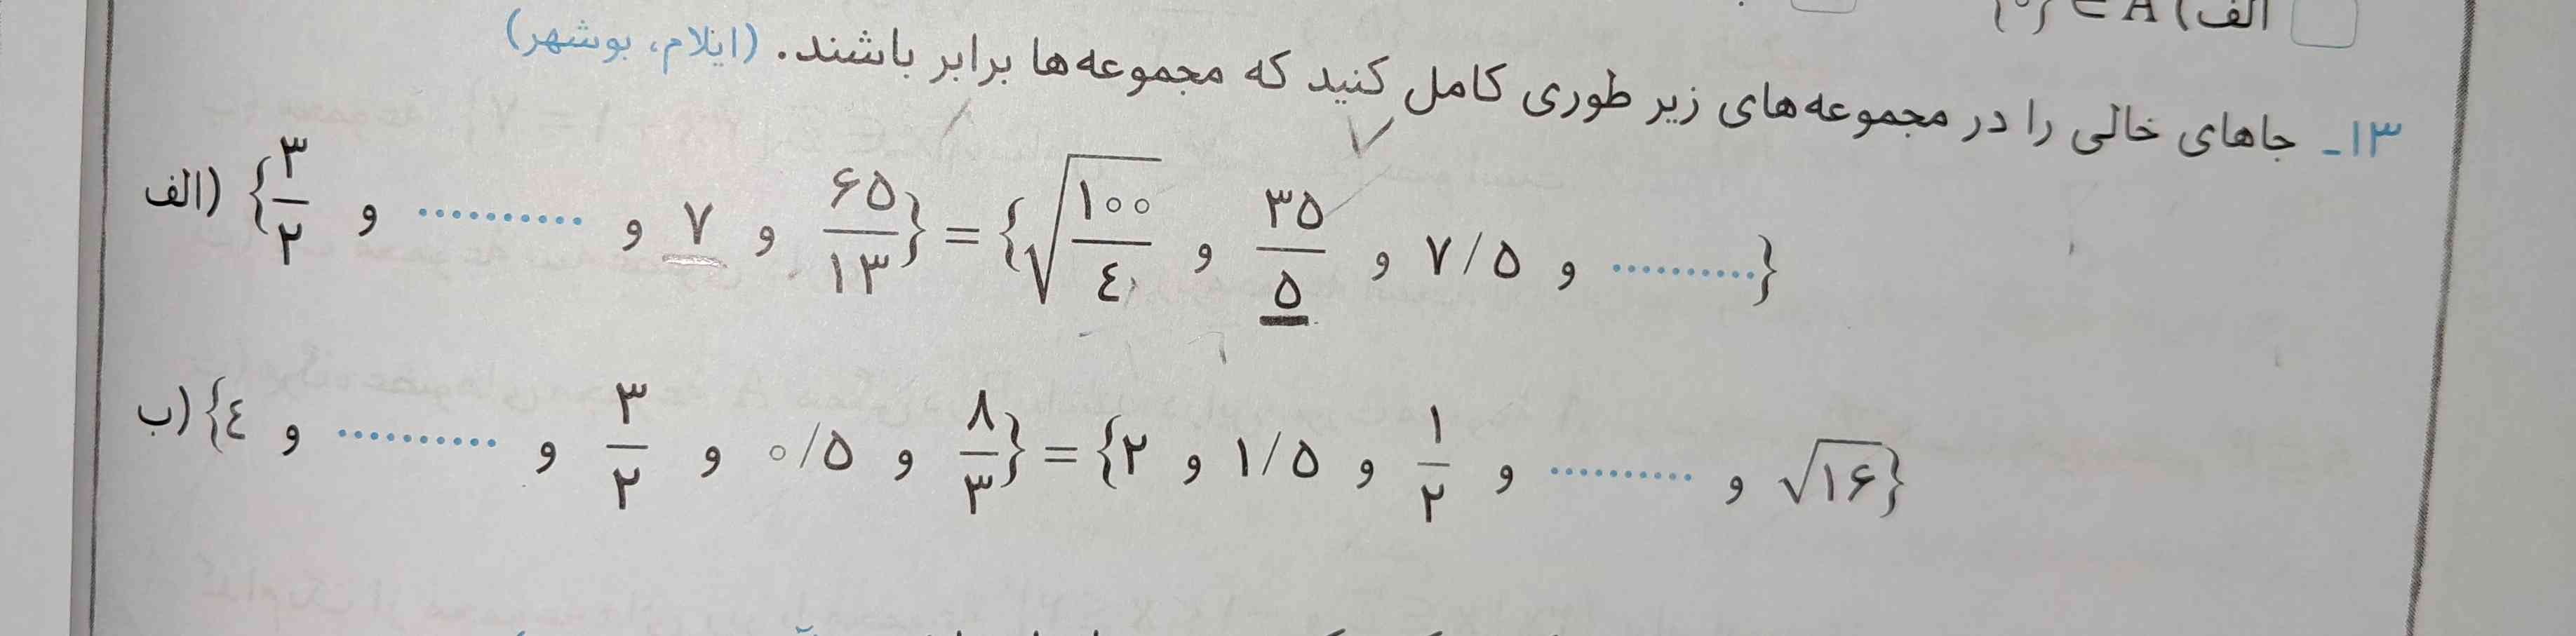 الف) {۰} ∈ A
۱۳ـ جاهای خالی را در مجموعه‌های زیر طوری کامل کنید که مجموعه‌ها برابر باشند. (ایلام، بوشهر)
الف) {۳/۲ و .......... و ۷ و ۶۵/۱۳} = {√(۱۰۰/٤) و ۳۵/۵ و ۷/۵ و ..........}
ب) {٤ و .......... و ۳/۲ و ۰/۵ و ۸/۳} = {۲ و ۱/۵ و ۱/۲ و .......... و √۱۶}